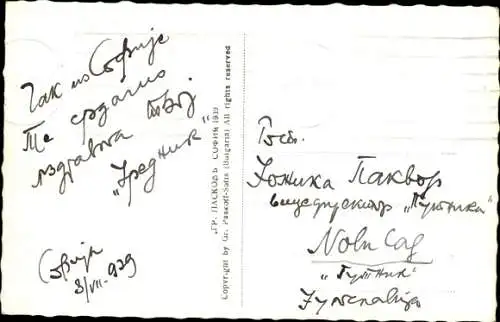 Чак из Софије
Те срдачно
поздравља твој
"Уредник"
Софија
8/VII-939
"ГР. ПАСКОВЪ" СОФИЯ 1939
Copyright by Gr. Paskoff-Sofia (Bulgaria) All rights reserved
Госп.
Паквор
"Путника"
Novi Sad
"Путник"
Југославија